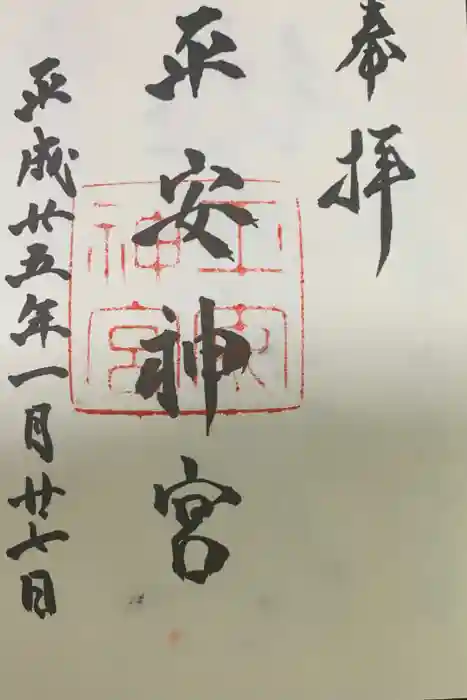 奉拝
平安神宮
平安神宮
平成廿五年一月廿七日